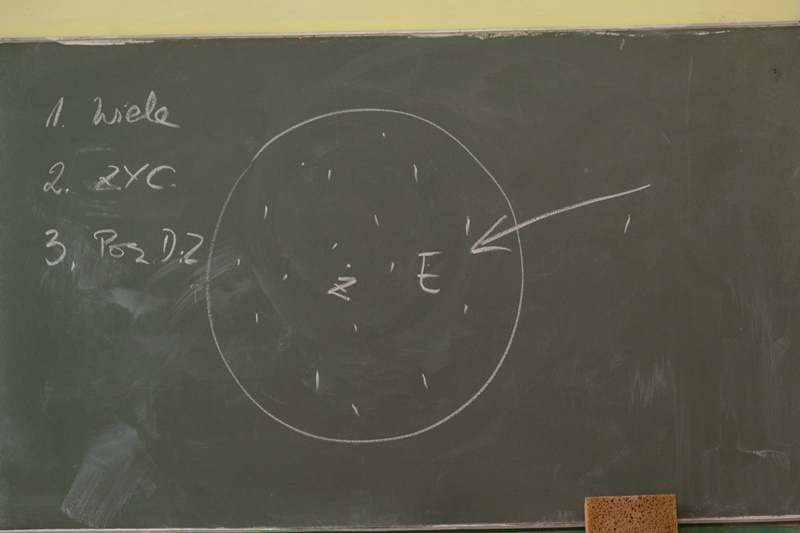 1. Wiele
2. ZYC.
3. Poz D:Z
Z E